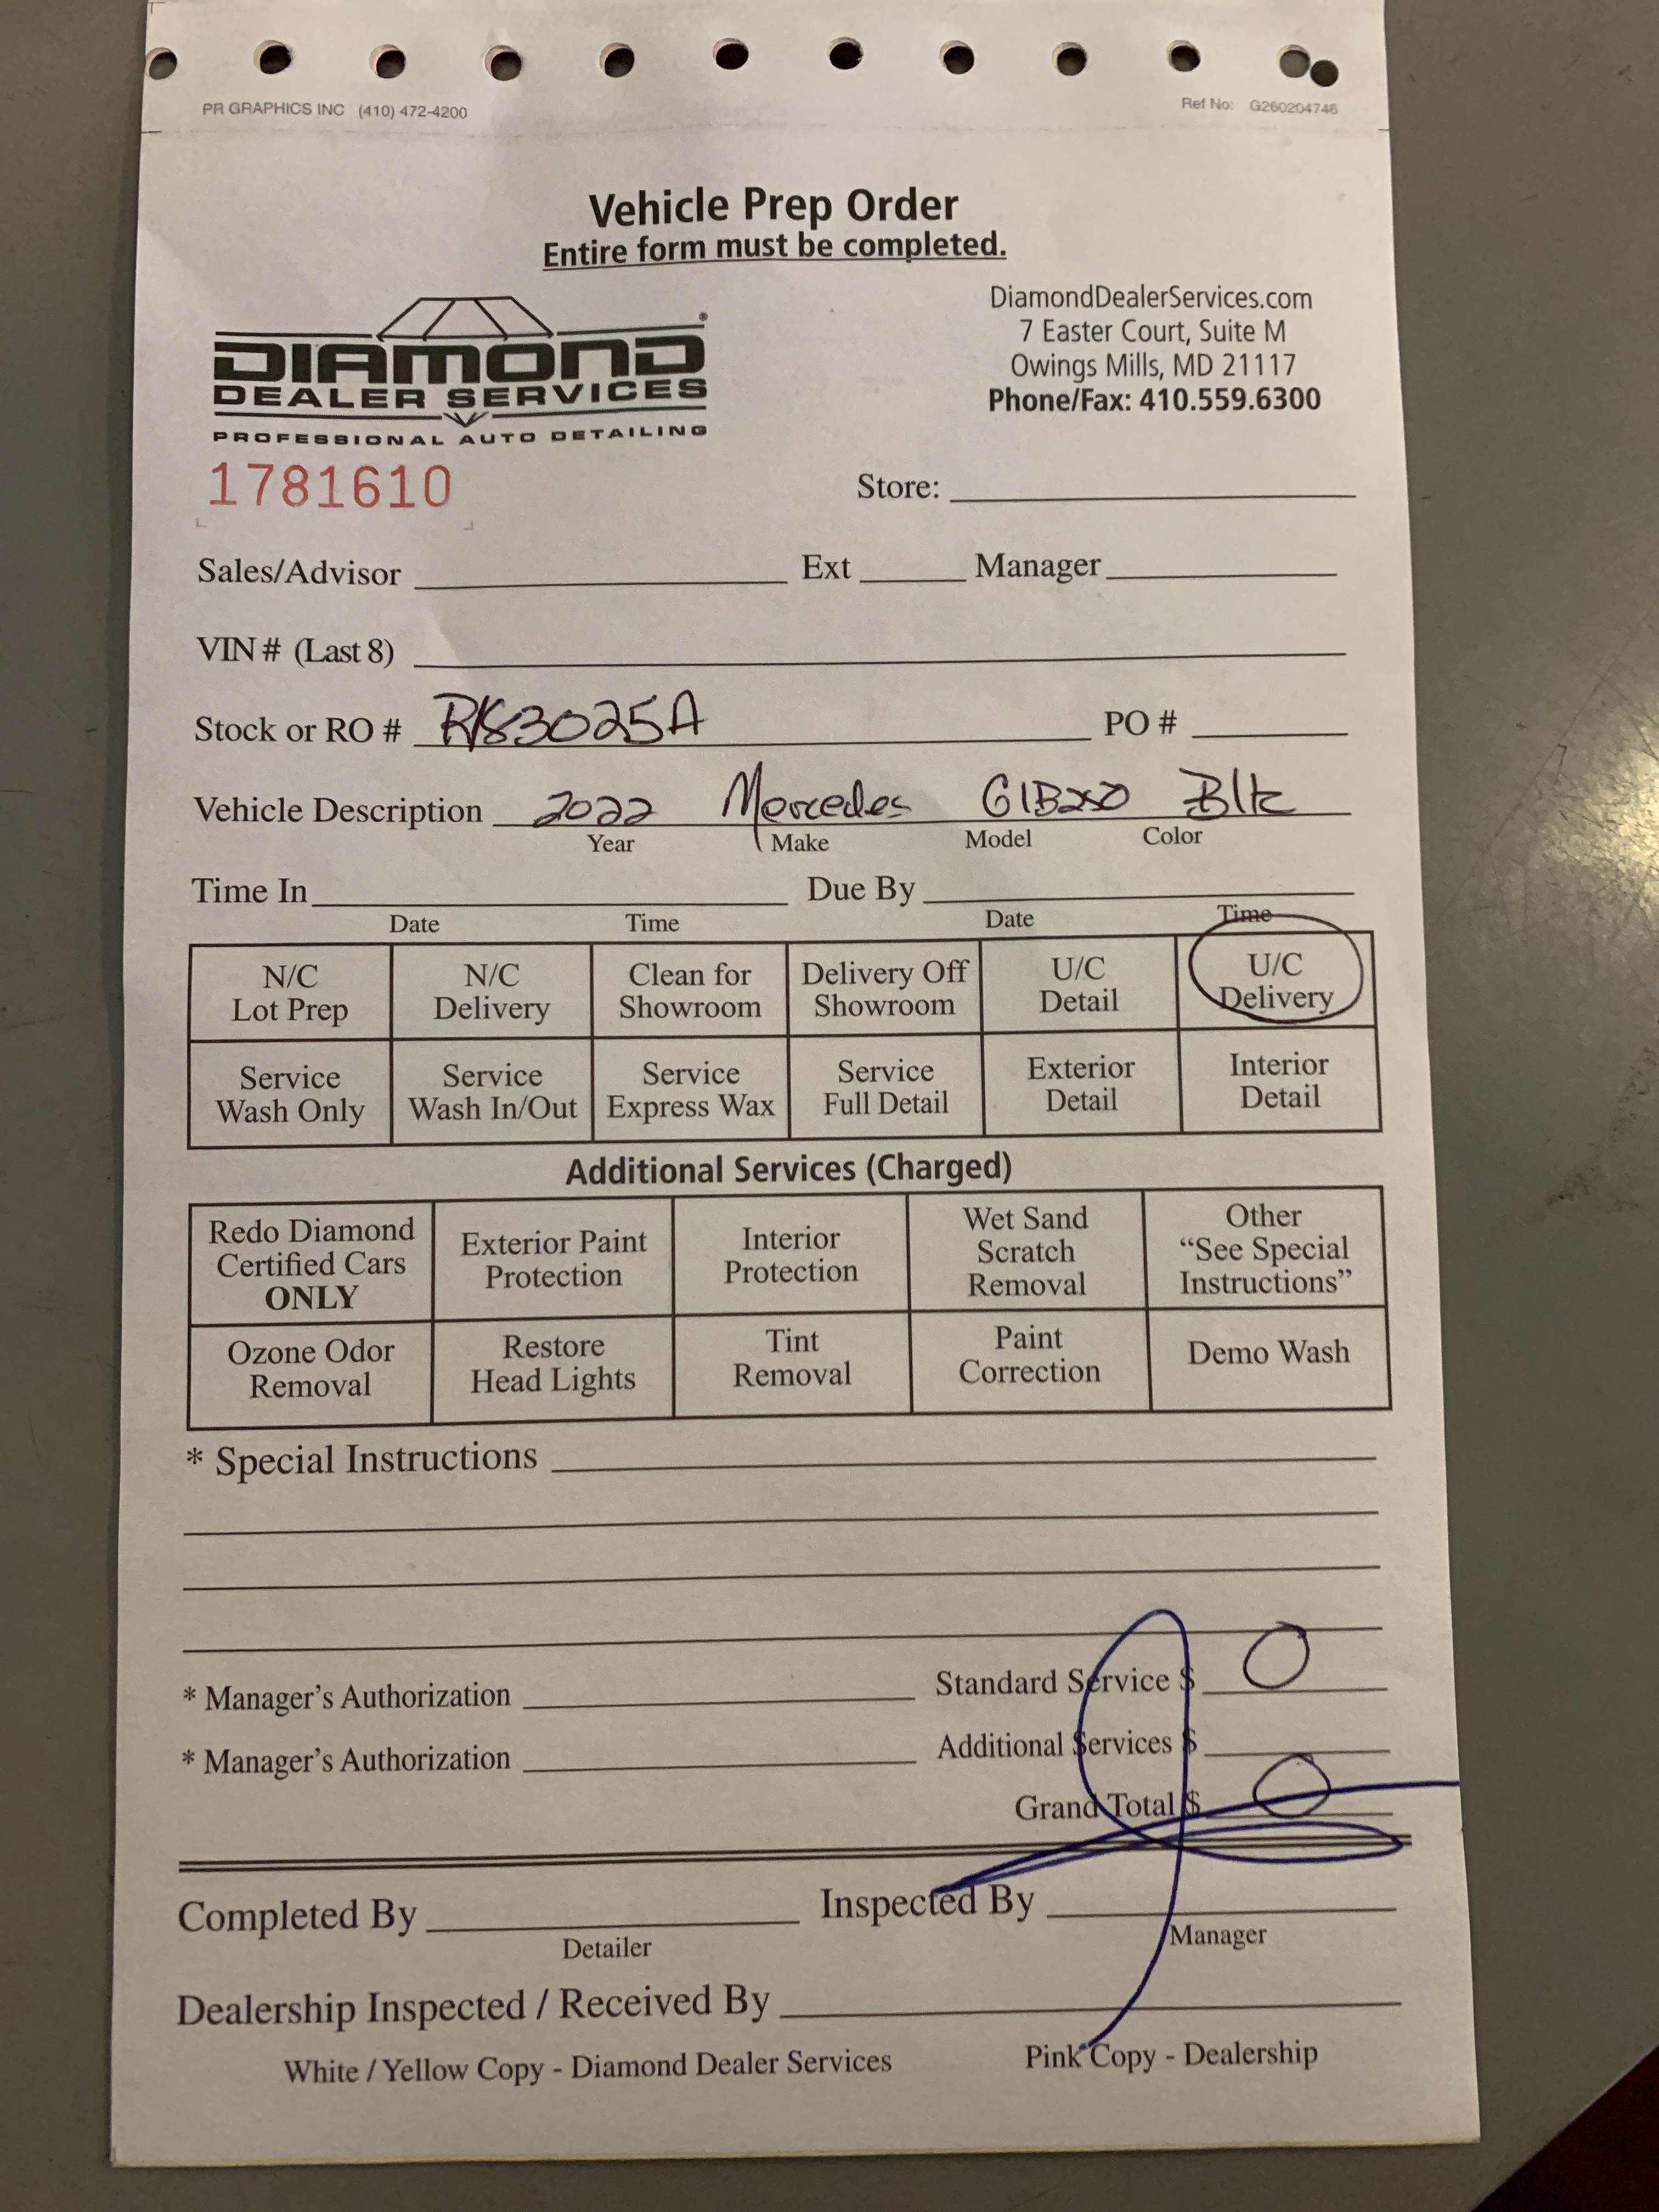 PR GRAPHICS INC (410) 472-4200 Ref No: G260204746
Vehicle Prep Order
Entire form must be completed.
DIAMOND
DEALER SERVICES
PROFESSIONAL AUTO DETAILING
DiamondDealerServices.com
7 Easter Court, Suite M
Owings Mills, MD 21117
Phone/Fax: 410.559.6300
1781610
Store:
Sales/Advisor Ext Manager
VIN # (Last 8)
Stock or RO # PO #
Vehicle Description 2022 Mercedes GlB250 Blk
Year Make Model Color
Time In Due By
Date Time Date Time
N/C Lot Prep
N/C Delivery
Clean for Showroom
Delivery Off Showroom
U/C Detail
U/C Delivery
Service Wash Only
Service Wash In/Out
Service Express Wax
Service Full Detail
Exterior Detail
Interior Detail
Additional Services (Charged)
Redo Diamond Certified Cars ONLY
Exterior Paint Protection
Interior Protection
Wet Sand Scratch Removal
Other “See Special Instructions”
Ozone Odor Removal
Restore Head Lights
Tint Removal
Paint Correction
Demo Wash
* Special Instructions
* Manager's Authorization Standard Service $ 0
* Manager's Authorization Additional Services $
Grand Total $ 0
Completed By Inspected By
Detailer Manager
Dealership Inspected / Received By
White / Yellow Copy - Diamond Dealer Services Pink Copy - Dealership